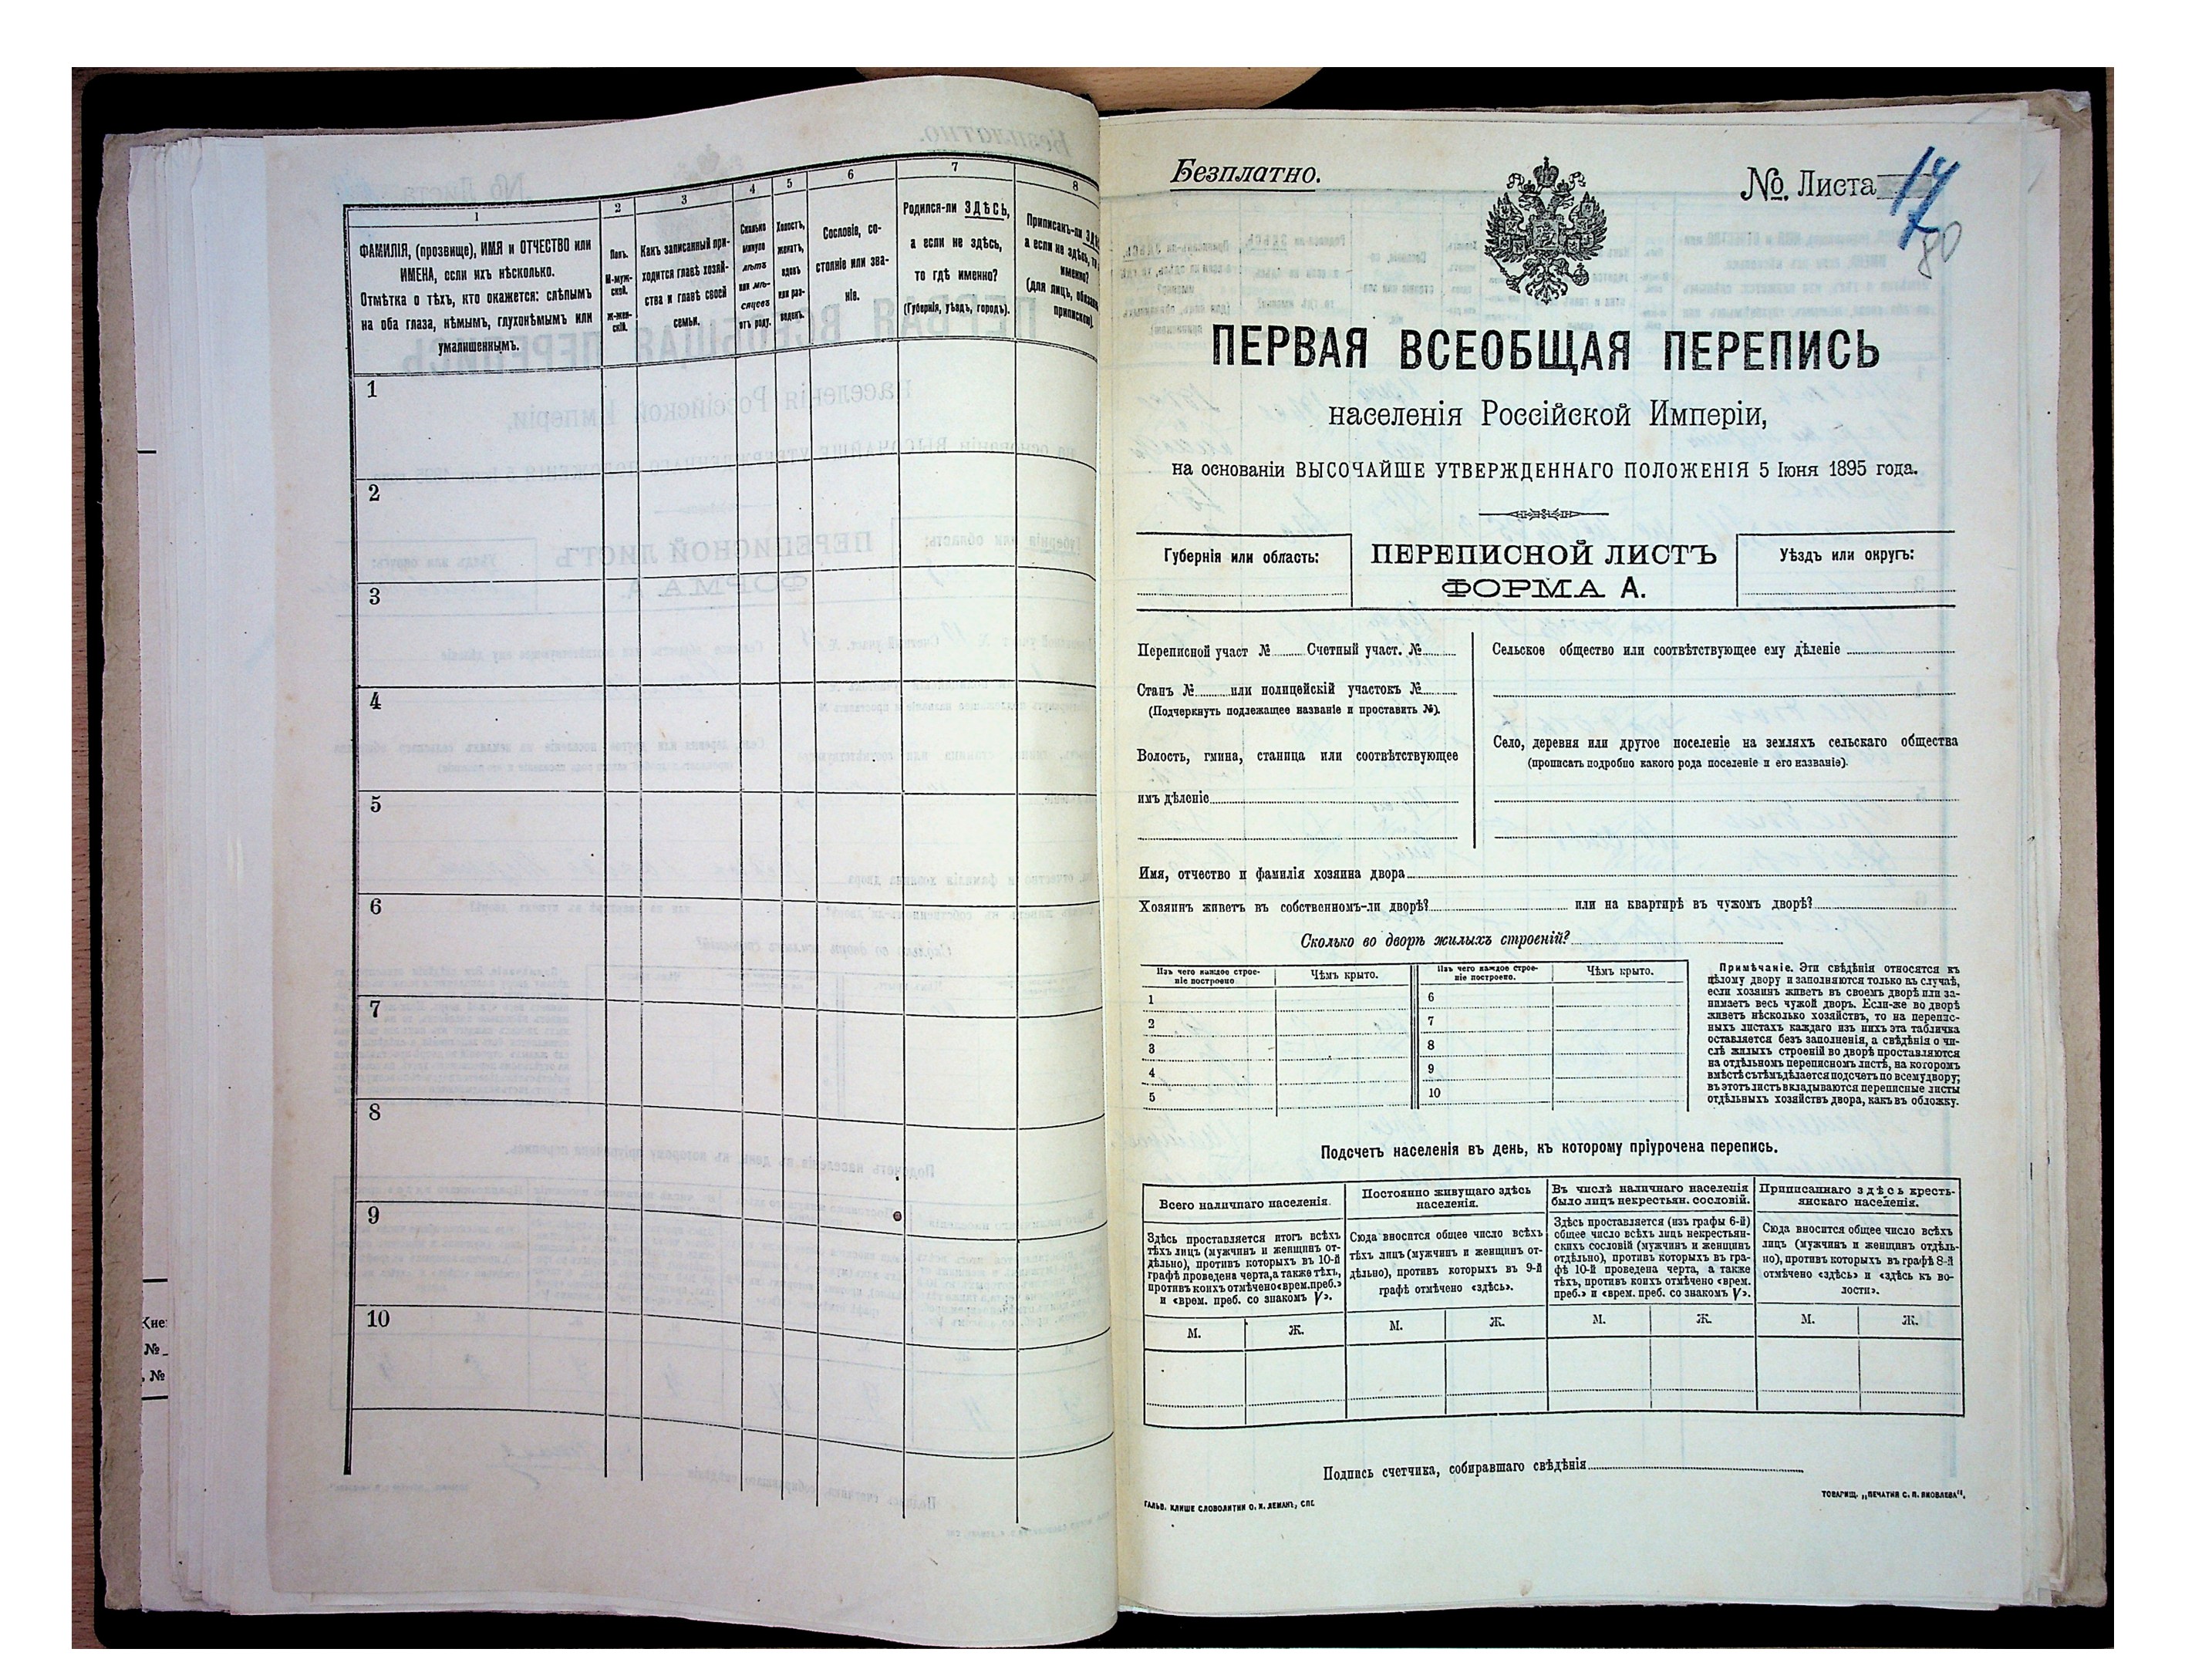 1
2
3
4
5
6
7
8
ФАМИЛІЯ, (прозвище), ИМЯ и ОТЧЕСТВО или
ИМЕНА, если ихъ нѣсколько.
Отмѣтка о тѣхъ, кто окажется: слѣпымъ
на оба глаза, нѣмымъ, глухонѣмымъ или
умалишеннымъ.
Полъ.
М-муж-
ской.
Ж-жен-
скій.
Какъ записанный при-
ходится главѣ хозяй-
ства и главѣ своей
семьи.
Сколько
минуло
лѣтъ
или мѣ-
сяцевъ
отъ роду.
Холостъ,
женатъ,
вдовъ
или раз-
веденъ.
Сословіе, со-
стояніе или зва-
ніе.
Родился-ли ЗДѢСЬ,
а если не здѣсь,
то гдѣ именно?
(Губернія, уѣздъ, городъ).
Приписанъ-ли
а если не здѣсь,
именно?
(для лицъ,
припискою).
1
2
3
4
5
6
7
8
9
10
№
, №
Безплатно.
№. Листа 14
80
ПЕРВАЯ ВСЕОБЩАЯ ПЕРЕПИСЬ
населенія Россійской Имперіи,
на основаніи ВЫСОЧАЙШЕ УТВЕРЖДЕННАГО ПОЛОЖЕНІЯ 5 Іюня 1895 года.
Губернія или область:
ПЕРЕПИСНОЙ ЛИСТЪ
ФОРМА А.
Уѣздъ или округъ:
Переписной участ № Счетный участ. №
Станъ № или полицейскій участокъ №
(Подчеркнуть подлежащее названіе и проставить №).
Волость, гмина, станица или соотвѣтствующее
имъ дѣленіе
Сельское общество или соотвѣтствующее ему дѣленіе
Село, деревня или другое поселеніе на земляхъ сельскаго общества
(прописать подробно какого рода поселеніе и его названіе).
Имя, отчество и фамилія хозяина двора
Хозяинъ живетъ въ собственномъ-ли дворѣ? или на квартирѣ въ чужомъ дворѣ?
Сколько во дворѣ жилыхъ строеній?
Изъ чего каждое строе-
ніе построено
Чѣмъ крыто.
Изъ чего каждое строе-
ніе построено.
Чѣмъ крыто.
1
2
3
4
5
6
7
8
9
10
Примѣчаніе. Эти свѣдѣнія относятся къ
цѣлому двору и заполняются только въ случаѣ,
если хозяинъ живетъ въ своемъ дворѣ или за-
нимаетъ весь чужой дворъ. Если-же во дворѣ
живетъ нѣсколько хозяйствъ, то на перепис-
ныхъ листахъ каждаго изъ нихъ эта табличка
оставляется безъ заполненія, а свѣдѣнія о чи-
слѣ жилыхъ строеній во дворѣ проставляются
на отдѣльномъ переписномъ листѣ, на которомъ
вмѣстѣ съ тѣмъ дѣлается подсчетъ по всему двору;
въ этотъ листъ вкладываются переписные листы
отдѣльныхъ хозяйствъ двора, какъ въ обложку.
Подсчетъ населенія въ день, къ которому пріурочена перепись.
Всего наличнаго населенія.
Постоянно живущаго здѣсь
населенія.
Въ числѣ наличнаго населенія
было лицъ некрестьян. сословій.
Приписаннаго здѣсь кресть-
янскаго населенія.
Здѣсь проставляется итогъ всѣхъ
тѣхъ лицъ (мужчинъ и женщинъ от-
дѣльно), противъ которыхъ въ 10-й
графѣ проведена черта, а также тѣхъ,
противъ коихъ отмѣчено «врем. преб.»
и «врем. преб. со знакомъ V».
Сюда вносится общее число всѣхъ
тѣхъ лицъ (мужчинъ и женщинъ от-
дѣльно), противъ которыхъ въ 9-й
графѣ отмѣчено «здѣсь».
Здѣсь проставляется (изъ графы 6-й)
общее число всѣхъ лицъ некрестьян-
скихъ сословій (мужчинъ и женщинъ
отдѣльно), противъ которыхъ въ гра-
фѣ 10-й проведена черта, а также
тѣхъ, противъ коихъ отмѣчено «врем.
преб.» и «врем. преб. со знакомъ V».
Сюда вносится общее число всѣхъ
лицъ (мужчинъ и женщинъ отдѣль-
но), противъ которыхъ въ графѣ 8-й
отмѣчено «здѣсь» и «здѣсь къ во-
лости».
М. Ж. М. Ж. М. Ж. М. Ж.
Подпись счетчика, собиравшаго свѣдѣнія
ГАЛЬВ. КЛИШЕ СЛОВОЛИТНИ О. И. ЛЕМАНЪ, СПБ.
ТОВАРИЩ. „ПЕЧАТНЯ С. П. ЯКОВЛЕВА".